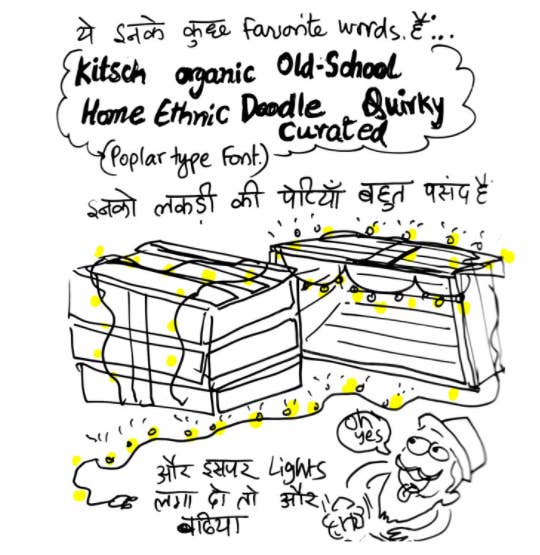 ये इनके कुछ Favorite words. हैं...
Kitsch organic Old-School
Home Ethnic Doodle Quirky
Curated
(Poplar type Font.)
इनको लकड़ी की पेटियाँ बहुत पसंद है
oh
yes
और इसपर Lights
लगा दो तो और
बढिया